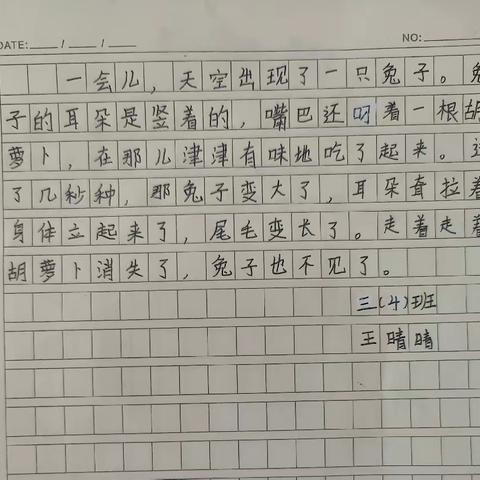 DATE: / / NO:
一会儿，天空出现了一只兔子。兔
子的耳朵是竖着的，嘴巴还叼着一根胡
萝卜，在那儿津津有味地吃了起来。过
了几秒种，那兔子变大了，耳朵耷拉着
身体立起来了，尾毛变长了。走着走着
胡萝卜消失了，兔子也不见了。
三(4)班
王晴晴